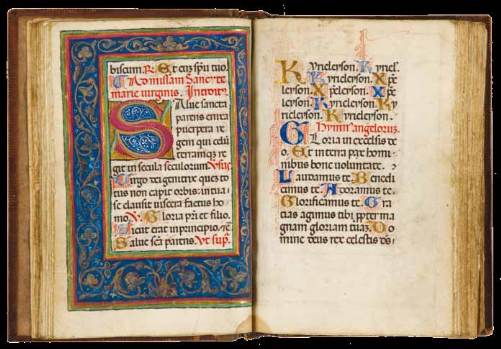 biscum. R. Et cum spū tuo.
Ad missam sancte
marie virginis. Introit9.
Salue sancta
parens enixa
puerpera re
gem qui celū
terramqz re
git in secula seculorum.
Virgo dei genitrix quem to
tus non capit orbis: in tua
se clausit viscera factus ho
mo. Gloria patri et filio.
Sicut erat in principio.
Salue sctā parens. Vt supª.
Kyrieleyson. Kyriel.
Kyrieleyson. Xpe
leyson. Xpe
leyson. Kyrieleyson. Ky
rieleyson.
Hymn9 angelorum.
Gloria in excelsis de
o. Et in terra pax homi
nibus bone voluntatis.
Laudamus te. Benedi
cimus te. Adoramus te.
Glorificamus te. Gra
tias agimus tibi propter ma
gnam gloriam tuam. Do
mine deus rex celestis de9